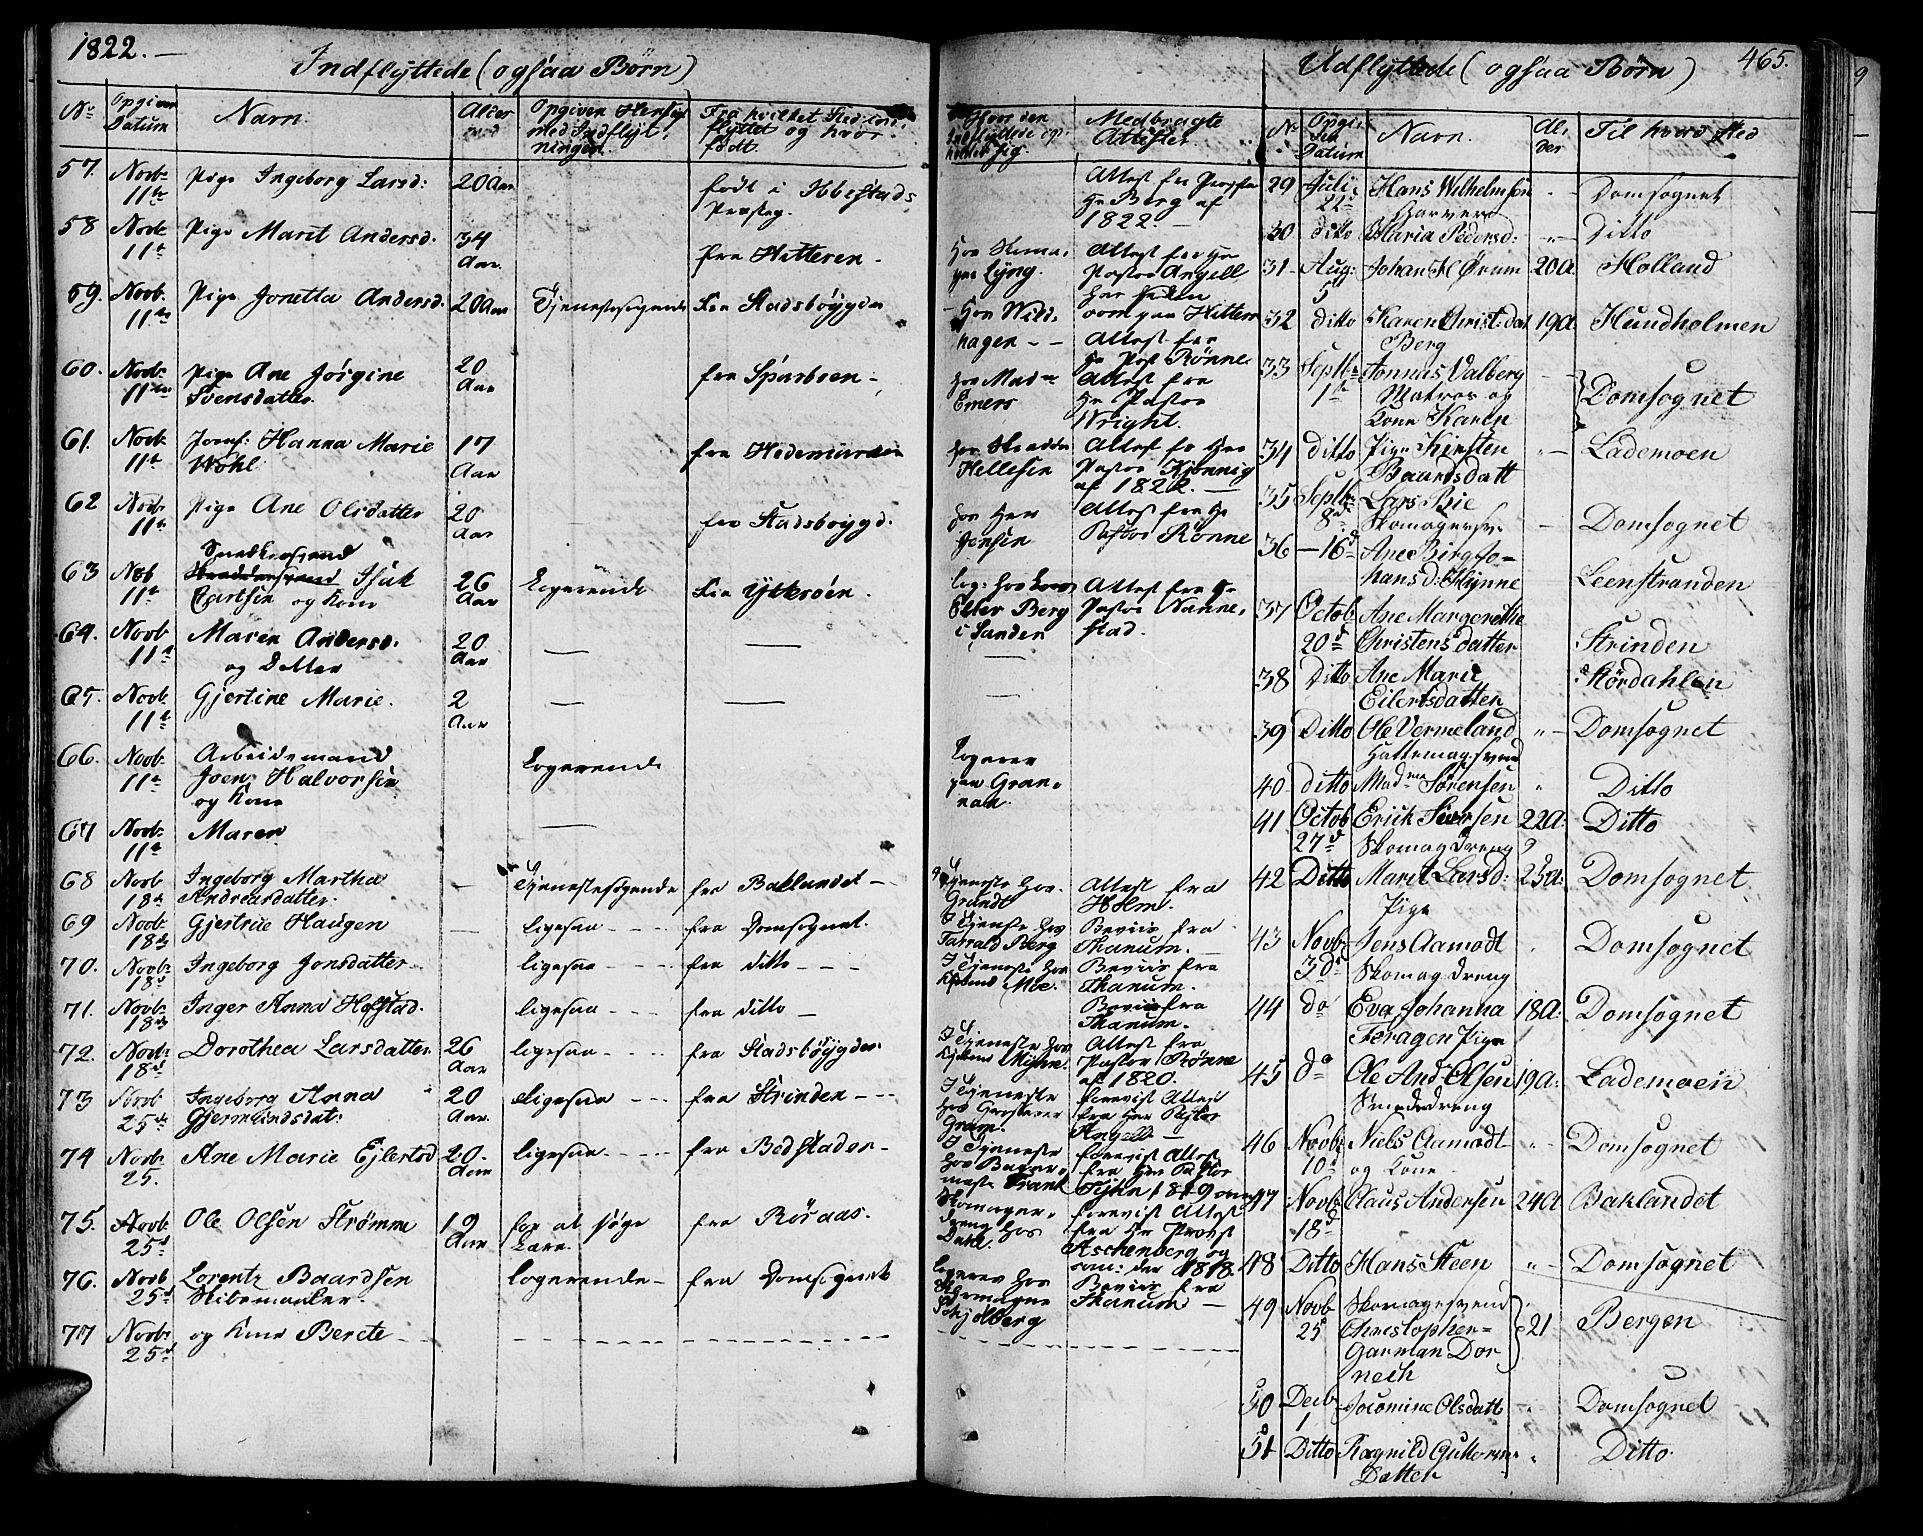 1822. —
Indflyttede (ogsaa Börn)
No
Opgiven Datum
Navn.
Alter
Opgiven Hensigt med Indflyt, ningen.
Fra hvilket Sted ind, flyttet og hvor födt.
57. Novb: 11te Pige Ingeborg Larsd: 20 Aar födt i Ibestads Præsteg.
58 Novb: 11te Pige Marit Andersd. 34 Aar. fra Hitteren -
59. Novb. 11te Pige Jonetta Andersd. 20 Aar Tjenestesögende Fra Stadsböygden
60. Novb: 11te Pige Ane Jörgine Svensdatter 20 Aar fra Sparboen -
61. Novb. 11te Jomf: Hanna Marie Wohl 17 Aar fra Hedemarken
62 Novb. 11te Pige Ane Olsdatter 20 Aar fra Stadsboygd.
63 Nob 11te Snedkersvend Isak Partsen og Kone 26 Aar Logerende Fra Ytteröen.
64. Novb 11te Maren Andersd. og Datter 20 Aar — —
65. Novb 11te Gjertine Marie. 2 Aar — —
66. Novb. 11te Arbeidsmand Joen Halvorsen og Kone Logerende
67 Novb. 11te Maren. —
68 Novb 18de Ingeborg Martha Andreasdatter — Tjenestesögende fra Baklandet -
69 Novb: 18de Gjertrue Haugen — ligesaa - - - fra Domsognet.
70. Novb: 18de Ingeborg Jonsdatter ligesaa - - - fra ditto - - -
71. Novb: 18de Inger Anna Hofstad. ligesaa - - - fra ditto -
72. Novb: 18de Dorothea Larsdatter 26 Aar ligesaa - - - fra Stadsböygden
73 Novb 25de Ingeborg Anna Gjermundsdat: 20 Aar. Ligesaa - - - fra Strinden - - -
74 Novb: 25. Ane Marie Ejlertsd 20. Aar ligesaa - - - fra Bedstaden -
75. Novb: 25d Ole Olsen Strömme 19 Aar for at söge Lære. fra Röraas.
76. Novb 25d Lorentz Baardsen Logerende - fra Domsognet
77 Novb: 25d og Kone Berete -
465.
Udflyttede (ogsaa Börn)
Hvor den Indflyttede op, holder sig.
Medbragte Attester.
No
Opgi, ven Datum
Navn.
Al, der
Til hvad Sted
Attest fra Provsten Hr Berg af 1822. —
Lyng. Attest fra Hr Pastor Angell
Attest fra Hr Past Rönne
Hos Mad= Emers Attest fra Hr Pastor Wright.
Hellesen Attest fra Her Pastor af 1822. —
hos Her Jensen Attest fra Hr Pastor Rönne
Berg i Sanden Attest fra Hr Pastor Nanne, stad.
—
—
Logerer
Tjeneste hos Grandt Attest fra Holm.
I Tjeneste hos Berg Beviis fra Thanum. —
I Tjeneste hos Moe. Beviis fra Thanum.
Beviis fra Thanum.
I Tjeneste hos Attest fra Pastor Rönne af 1820.
I Tjeneste hos Gram. forevist Attest fra Her Pastor Angell —
I Tjeneste hos forevist Attest fra Her Pastor
Skomager, dreng hos Dahl. forevist Attest fra Hr Provst Aschenberg og
Logerer hos Schjölberg Beviis fra Thanum —
29 Juli 22d Hans Wilhelmsen - Domsognet
30 ditto Maria Pedersd: „ Ditto
31 Aug: 5 Johan M Örum 20 A Holland
32 ditto Karen Christ:dat Berg 19 A. Hundholmen
33 Septb: 1te Jonnas Valberg Matros og Kone Karen - Domsognet
34 ditto Pige Kirsten Baardsdatt „ Lademoen
35 Septb: 8de Lars Bie Skomagersv: - Domsognet
36 —16d Ane Birg: Jo= hansd: Leenstranden
37 Octob 20d Ane Margerethe Christensdatter Strinden
38 Ditto Ane Marie Eilertsdatter Stördahlen
39 Ditto Ole Vermeland Hattemag:svend „ Domsognet
40 ditto Madme Sörensen „ Ditto
41 Octob 27d Erick Iversen Skomagdreng 22 A: Ditto
42 Ditto Marit Larsd: Pige 23 A: Domsognet
43 Novb: 3d: Jens Aamodt Skomagdreng Domsognet
44 do Eva Johanna Feragen Pige 18 A: Domsognet
45 do Ole And: Olsen Smededreng 19 A: Lademoen
46 Novb: 10d Niels Aamodt og Kone „ Domsognet
47 Novb: 18d Claus Andersen 24 A Baklandet
48 Ditto Hans Steen „ Domsognet
49 Novb 25d Skomagesvend Christopher= Garman Dor nech 21 Bergen
50 Decb 1 Jocomine Olsdatt „ Domsognet
51 Ditto Ragnild Guttorms Datter „ Ditto